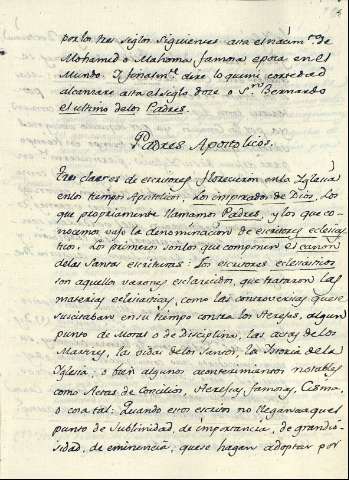 por los tres siglos siguientes asta el nacim.to de
Mohamed o Mahoma famosa epoca en el
Mundo. Y finalm.te dire lo que mi cortedad
alcanzare asta el siglo doze o S.n Bernardo
el ultimo de los Padres.
Padres Apostolicos.
Tres clases de escritores florecieron en la Iglesia
en los tiempos Apostolicos: Los inspirados de Dios, Los
que propriamente llamamos Padres, y los que co-
nocemos vajo la denominacion de escritores eclesias-
ticos. Los primeros son los que componen el canon
de las Santas escrituras: Los escritores eclesiasticos
son aquellos varones esclarecidos, que trataron las
materias eclesiasticas, como las controversias que se
suscitaban en su tiempo contra los Hereges, algun
punto de Moral o de Disciplina, las actas de los
Martires, las vidas de los Santos, la Istoria de la
Iglesia; o bien algunos acontecimientos notables
como Actas de Concilios, Heregias famosas, Cisma,
o cosa tal: Quando estos escritos no llegan a aquel
punto de sublimidad, de importancia, de grandio-
sidad, de eminencia, que se hagan adoptar por